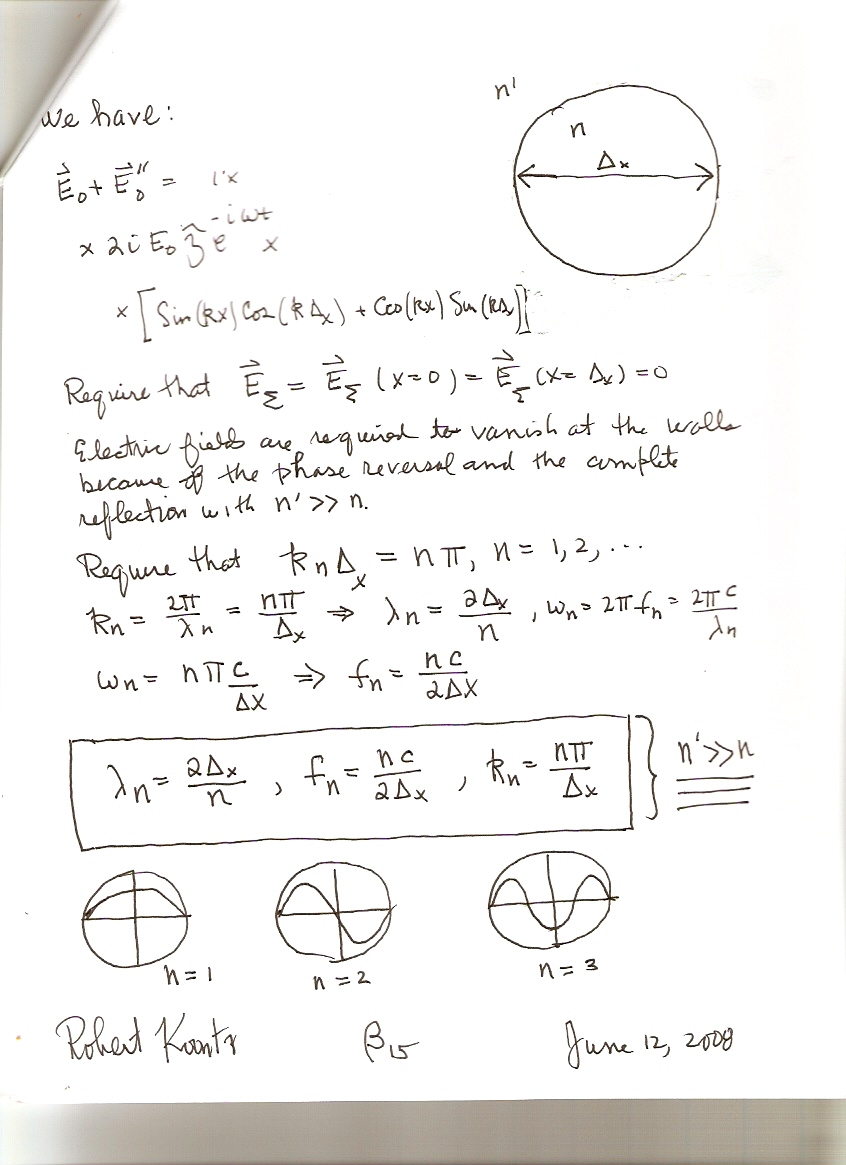 We have:
n'
n
Δx
E⃗₀ + E⃗₀'' =
× 2i E₀ ẑ e^{-iωt} x
× [Sin(kx) Cos(kΔx) + Cos(kx) Sin(kΔ)]
Require that E⃗_Σ = E⃗_Σ (x=0) = E⃗_Σ (x=Δx) = 0
Electric fields are required to vanish at the walls
because of the phase reversal and the complete
reflection with n' >> n.
Require that kₙΔx = nπ, n = 1, 2, ...
kₙ = 2π/λₙ = nπ/Δx ⇒ λₙ = 2Δx/n , ωₙ = 2πfₙ = 2πc/λₙ
ωₙ = nπ c/ΔX ⇒ fₙ = nc/2ΔX
λₙ = 2Δx/n , fₙ = nc/2Δx , kₙ = nπ/Δx } n' >> n
n = 1
n = 2
n = 3
Robert Koontz β₁₅ June 12, 2008